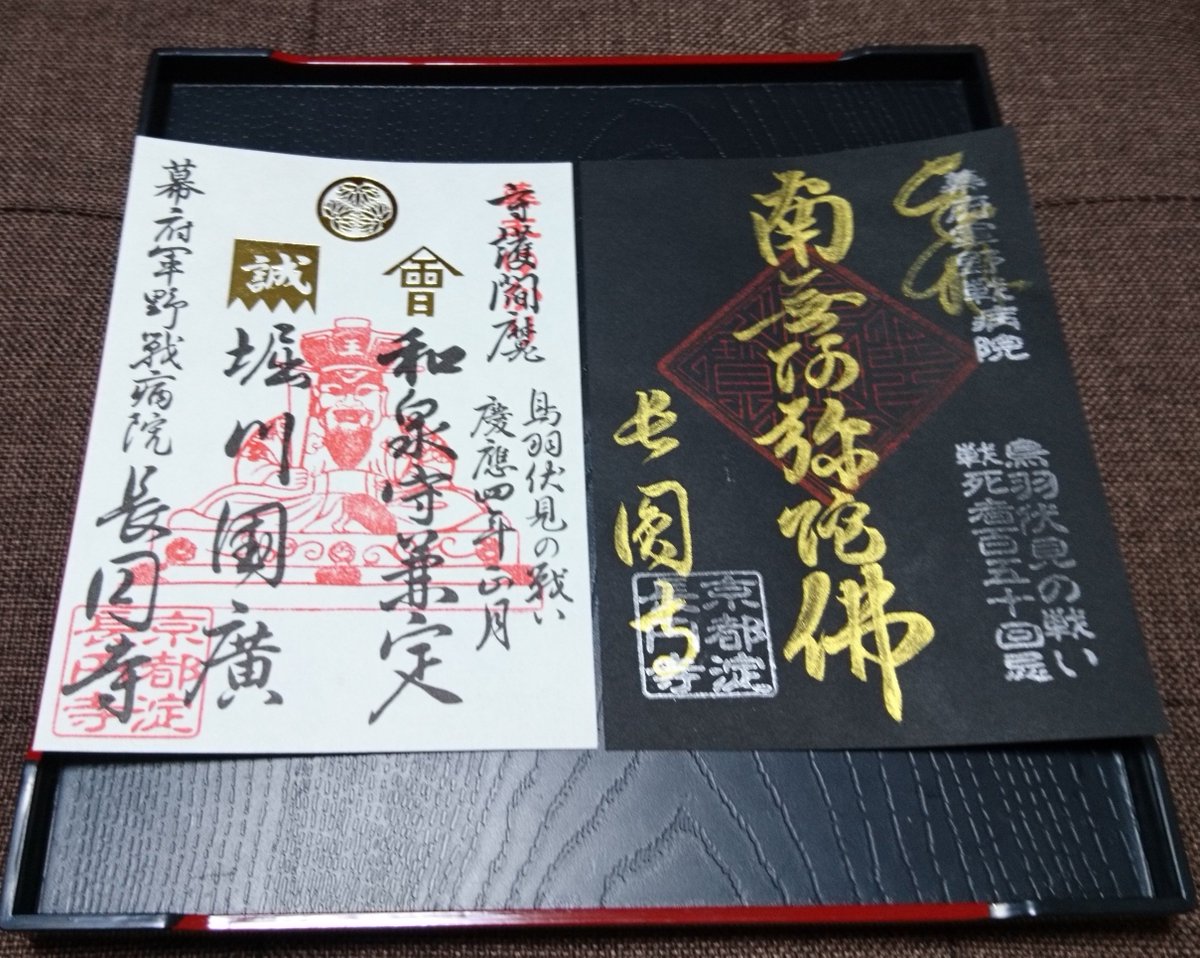 奉拝
幕府軍野戦病院
鳥羽伏見の戦い
戦死者百五十回忌
南無阿弥陀佛
長圓寺
京都淀
長円寺
守護閻魔
鳥羽伏見の戦い
慶應四年正月
會
和泉守兼定
王
誠
堀川國廣
幕府軍野戦病院
長円寺
京都淀
長円寺